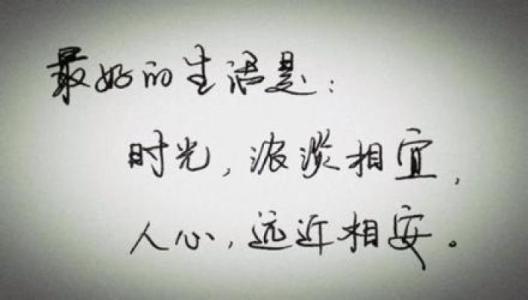 最好的生活是:
时光,浓淡相宜,
人心,远近相安。